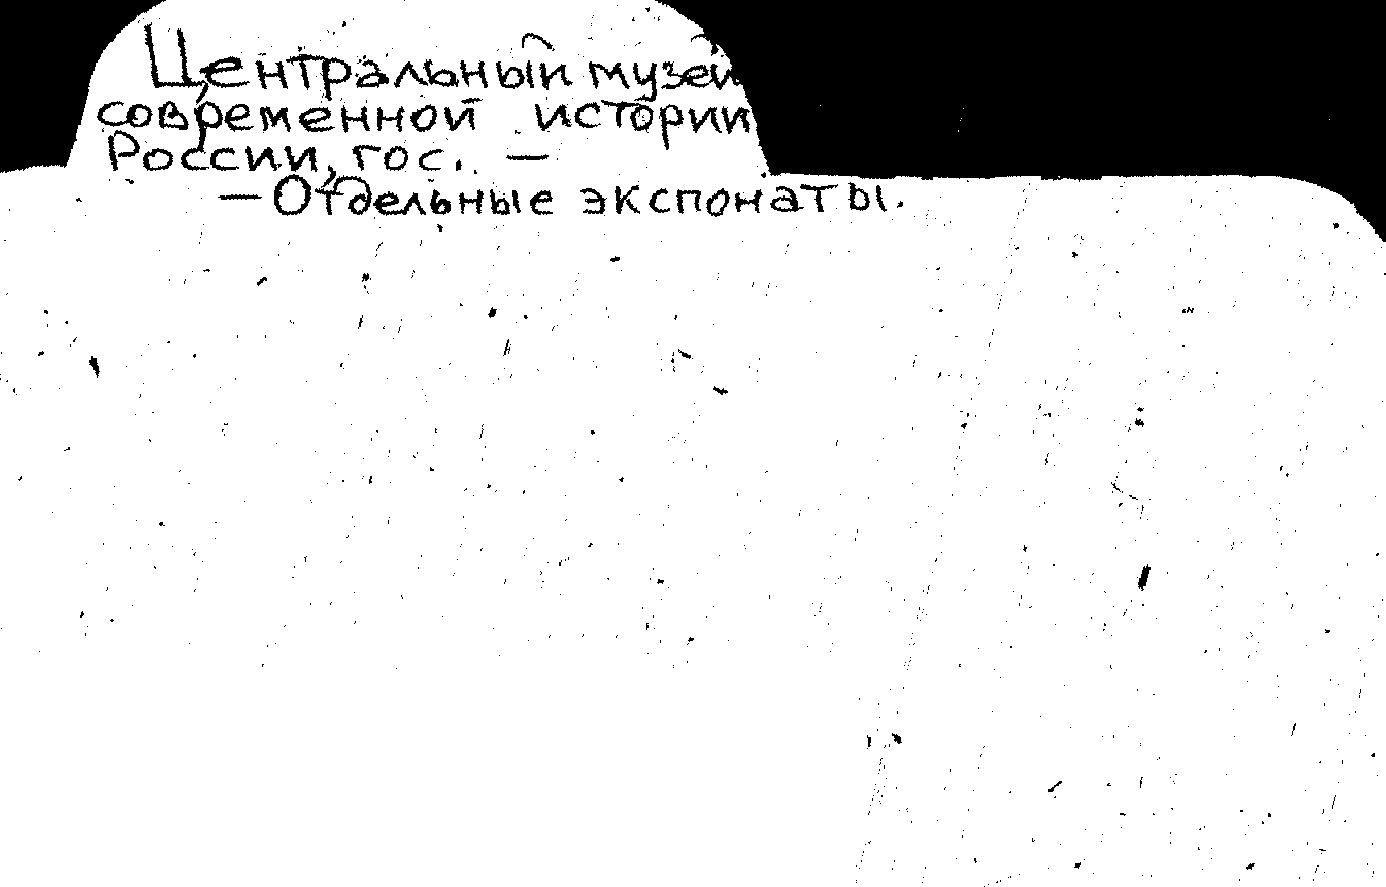 Центральный музей
современной истории
России, гос. —
— Отдельные экспонаты.